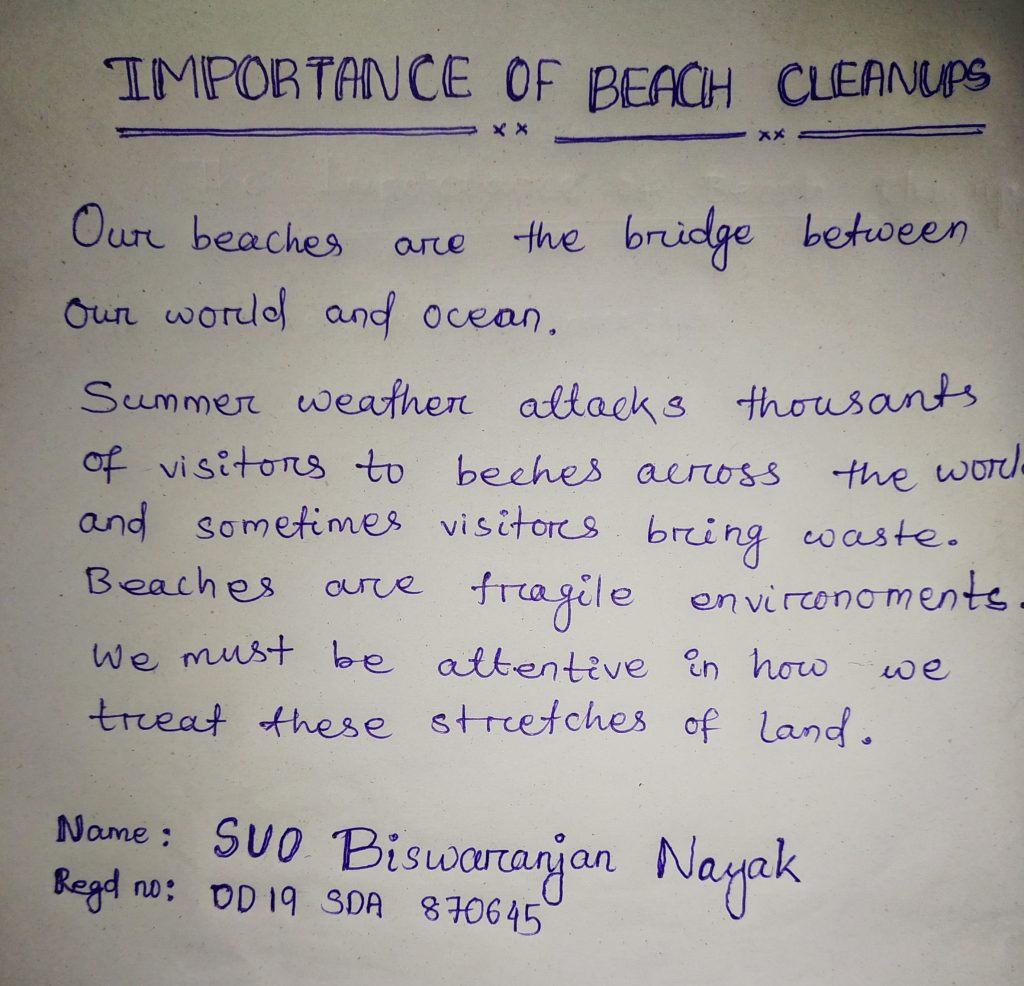 IMPORTANCE OF BEACH CLEANUPS
xx xx
Our beaches are the bridge between
our world and ocean.
Summer weather attacks thousants
of visitors to beehes across the world
and sometimes visitors bring waste.
Beaches are fragile environoments.
We must be attentive in how we
treat these stretches of land.
Name: SUO Biswaranjan Nayak
Regd no: OD 19 SDA 870645